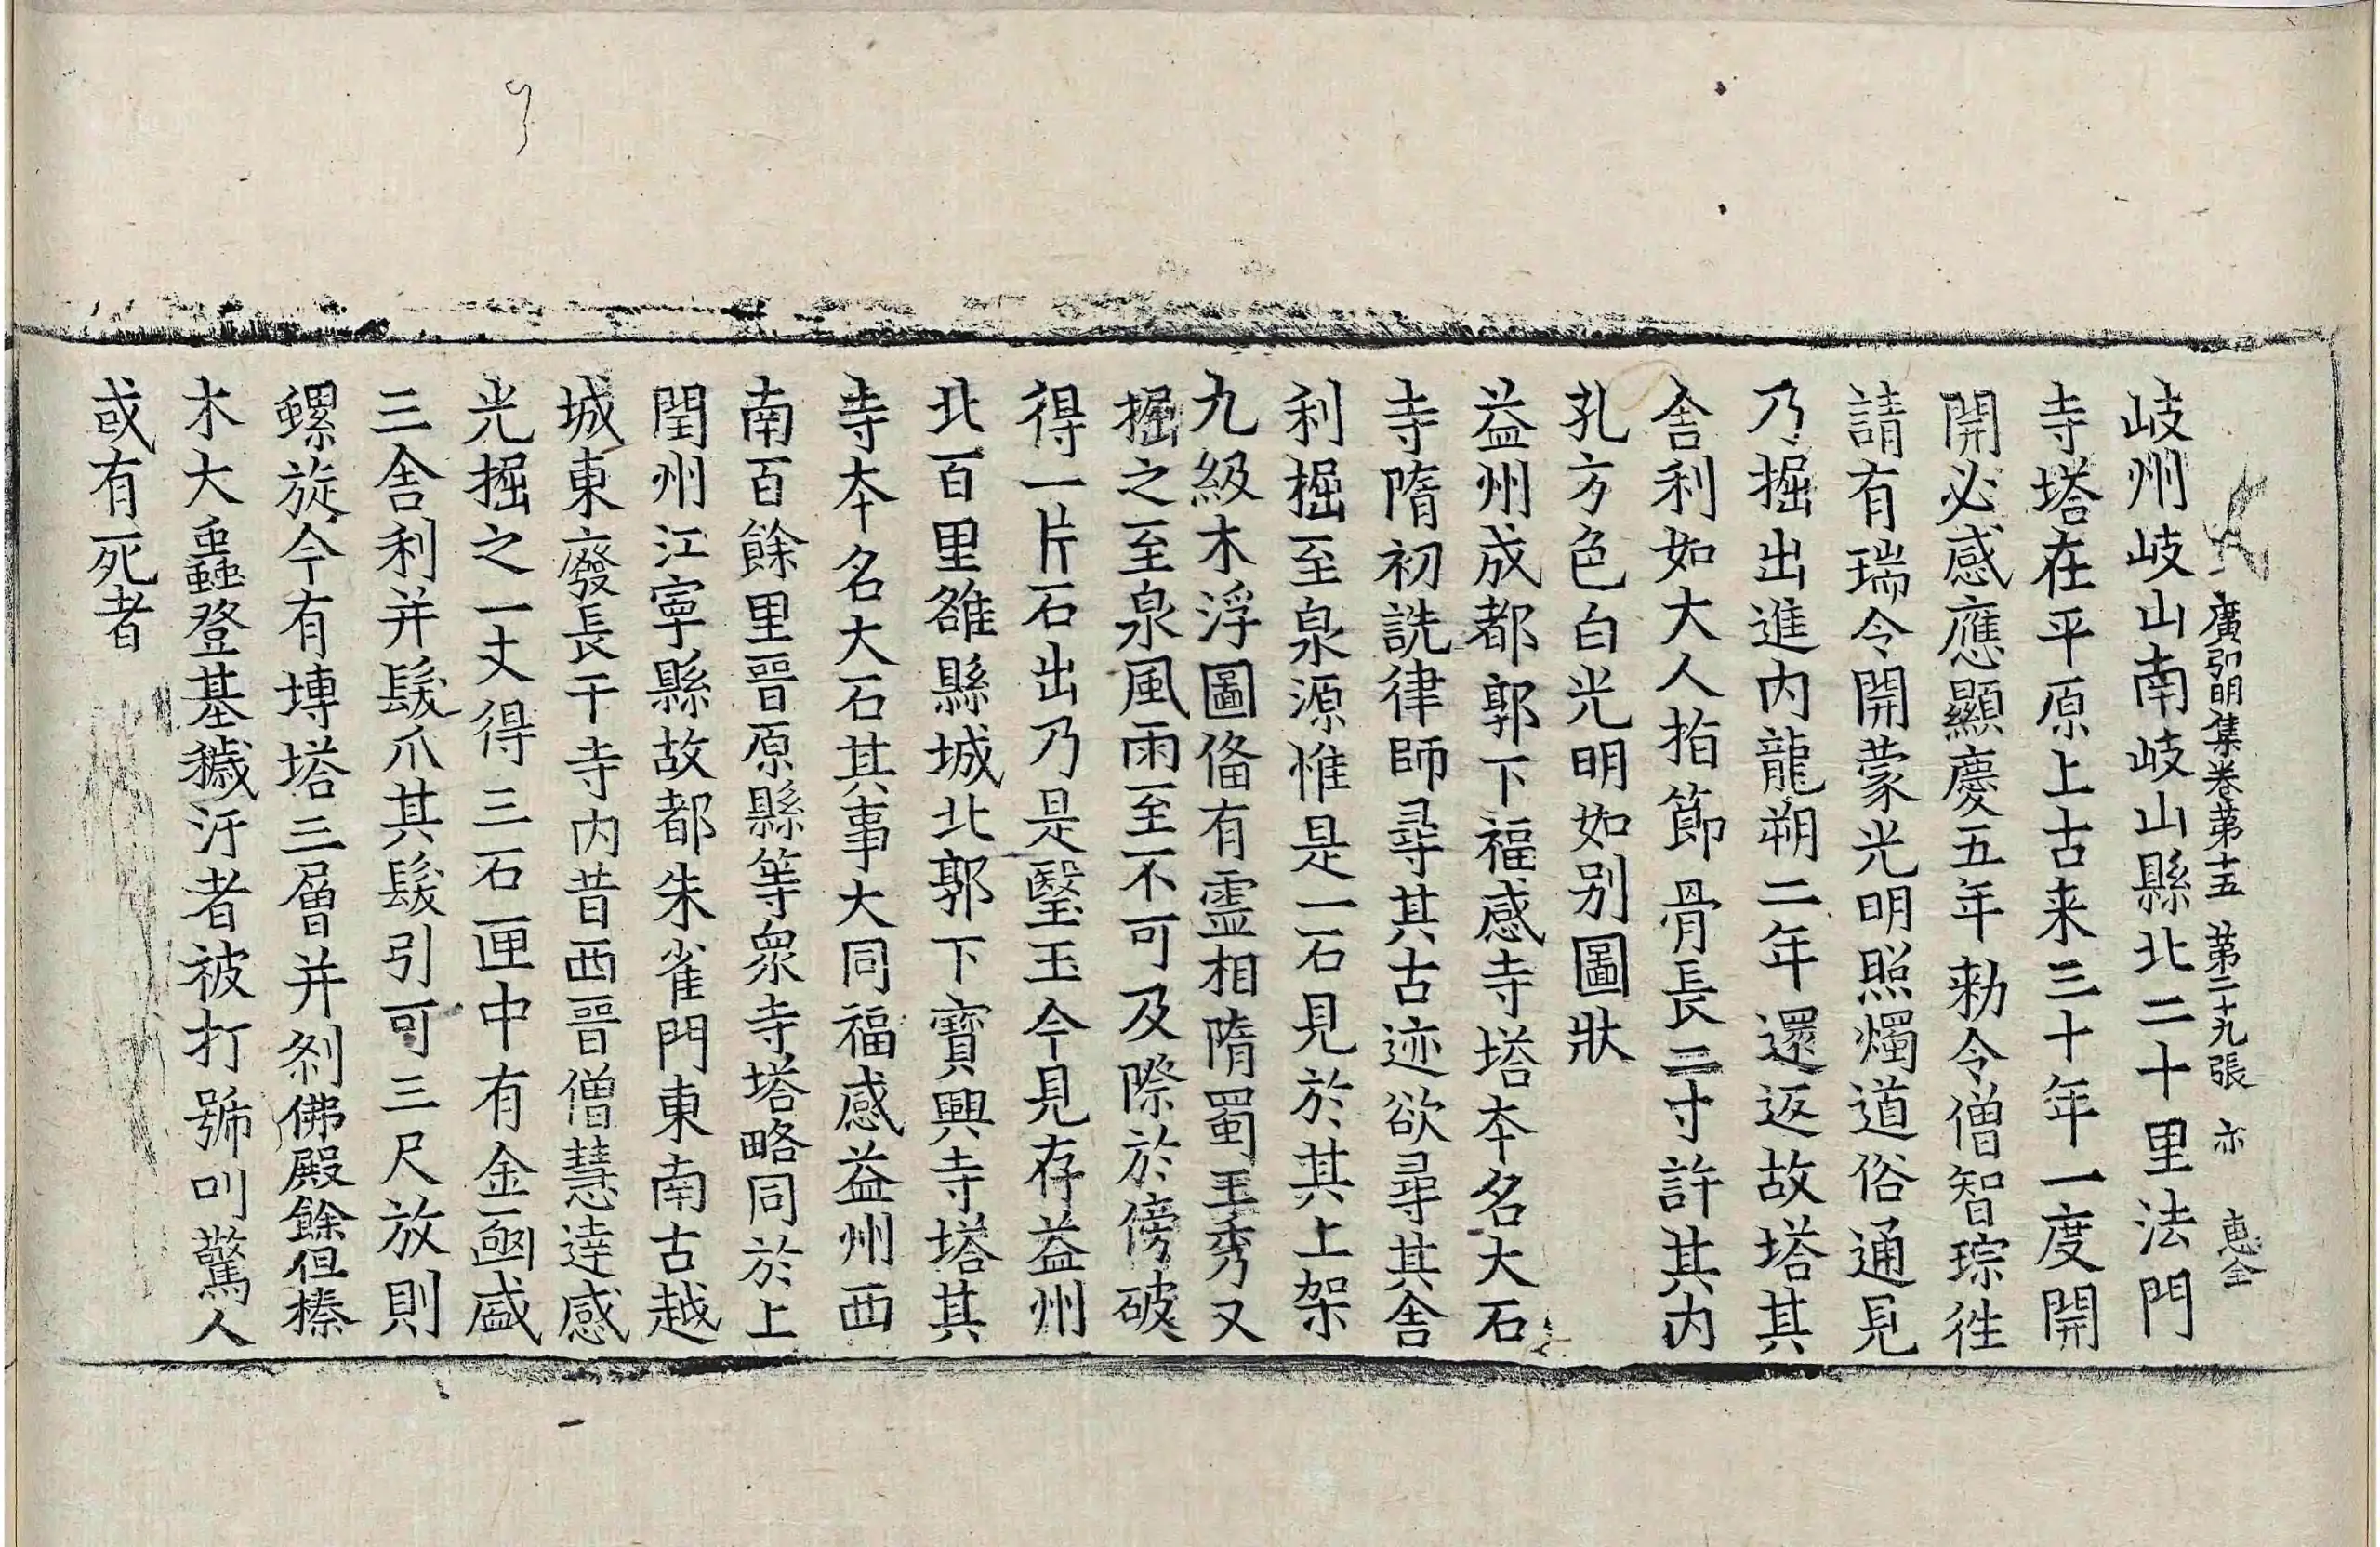 廣弘明集卷第十五 第二十九張 亦 惠全
岐州岐山南岐山縣北二十里法門
寺塔在平原上古来三十年一度開
開必感應顯慶五年勑令僧智琮徃
請有瑞令開蒙光明照燭道俗通見
乃掘出進內龍朔二年還返故塔其
舍利如大人指節骨長二寸許其內
孔方色白光明如别圖狀
益州成都郭下福感寺塔本名大石
寺隋初詵律師尋其古迹欲尋其舍
利掘至泉源惟是一石見於其上架
九級木浮圖俻有靈相隋蜀王秀又
掘之至泉風雨至不可及際於傍破
得一片石出乃是瑿玉今見存益州
北百里雒縣城北郭下寶興寺塔其
寺本名大石其事大同福感益州西
南百餘里晉原縣等衆寺塔略同於上
閏州江寧縣故都朱雀門東南古越
城東廢長干寺内昔西晉僧慧達感
光掘之一丈得三石匣中有金函盛
三舍利并髮爪其髮引可三尺放則
螺旋今有塼塔三層并剎佛殿餘但榛
木大蟲登基穢汙者被打號叫驚人
或有死者